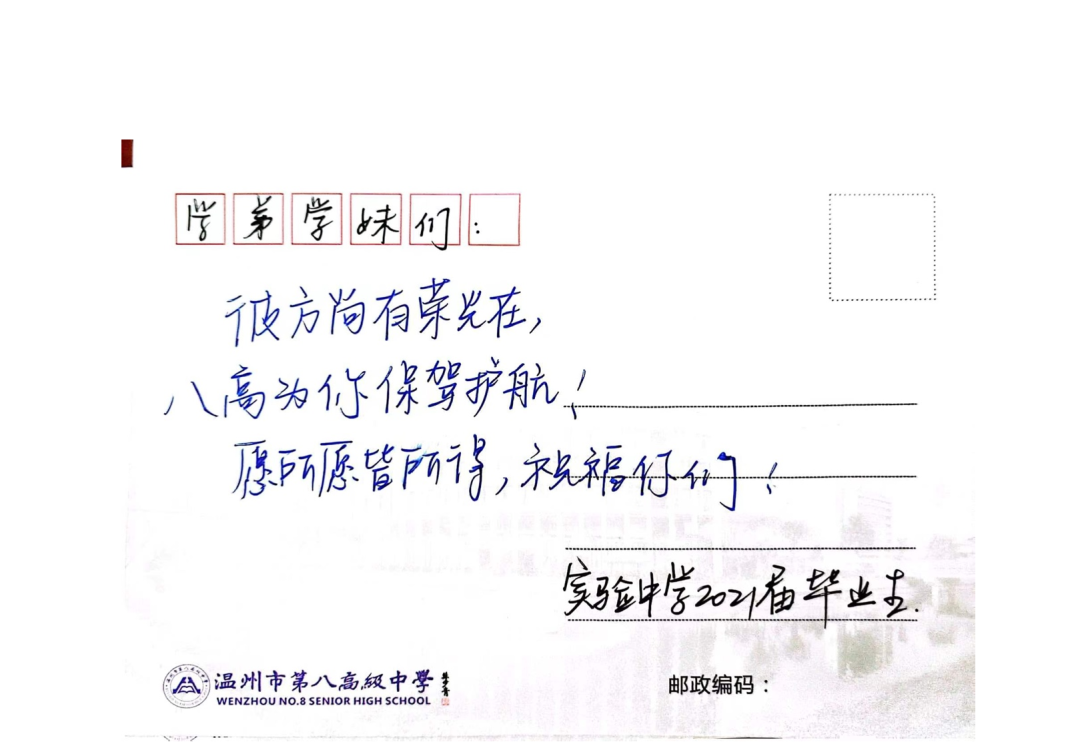 学弟学妹们：
彼方尚有荣光在，
八高为你保驾护航！
愿所愿皆所得，祝福你们！
实验中学2021届毕业生.
温州市第八高級中學
WENZHOU NO.8 SENIOR HIGH SCHOOL
邮政编码：